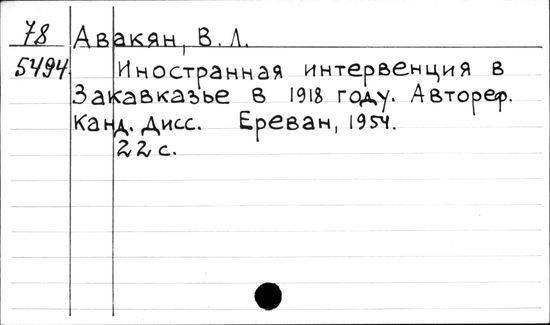 78 Авакян, В. Л.
5494 Иностранная интервенция в
Закавказье в 1918 году. Автореф.
канд. дисс. Ереван, 1954.
22 с.